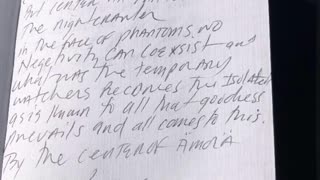 the high crawler
in the face of phantoms. NO
Negativity can coexist and
what was the temporary
watchers becomes the isolated
as is known to all that goodness
prevails and all comes to this.
By the center of Amora